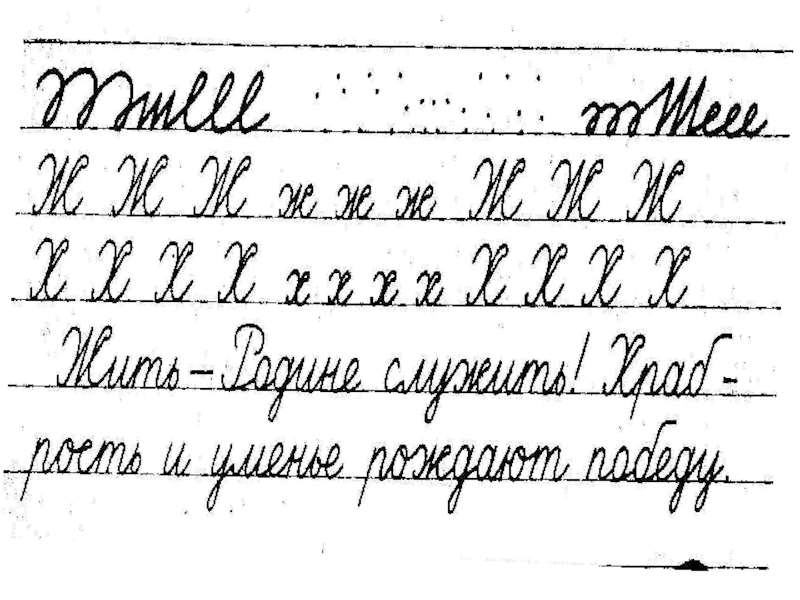 Ж Ж Ж ж ж ж Ж Ж Ж
Х Х Х Х х х х х Х Х Х Х
Жить – Родине служить! Храб-
рость и уменье рождают победу.